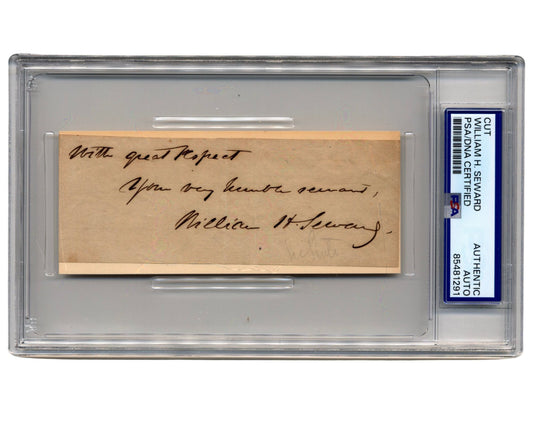 With great Respect
Your very humble servant,
William H. Seward.
CUT
WILLIAM H. SEWARD
PSA/DNA CERTIFIED
PSA
AUTHENTIC
AUTO
85481291